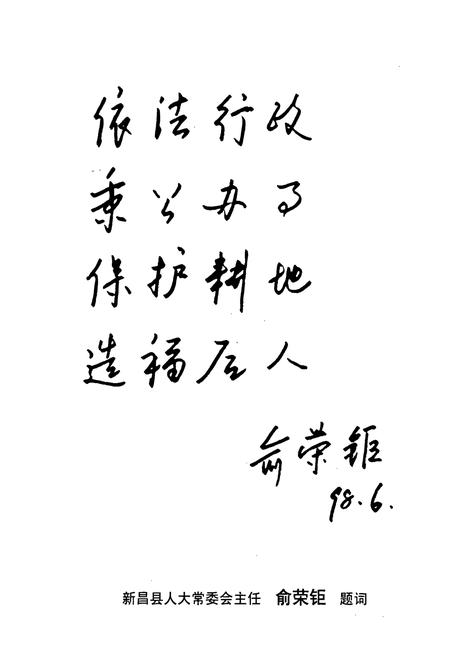 依法行政
秉公办事
保护耕地
造福后人
俞荣钜
98.6.
新昌县人大常委会主任 俞荣钜 题词